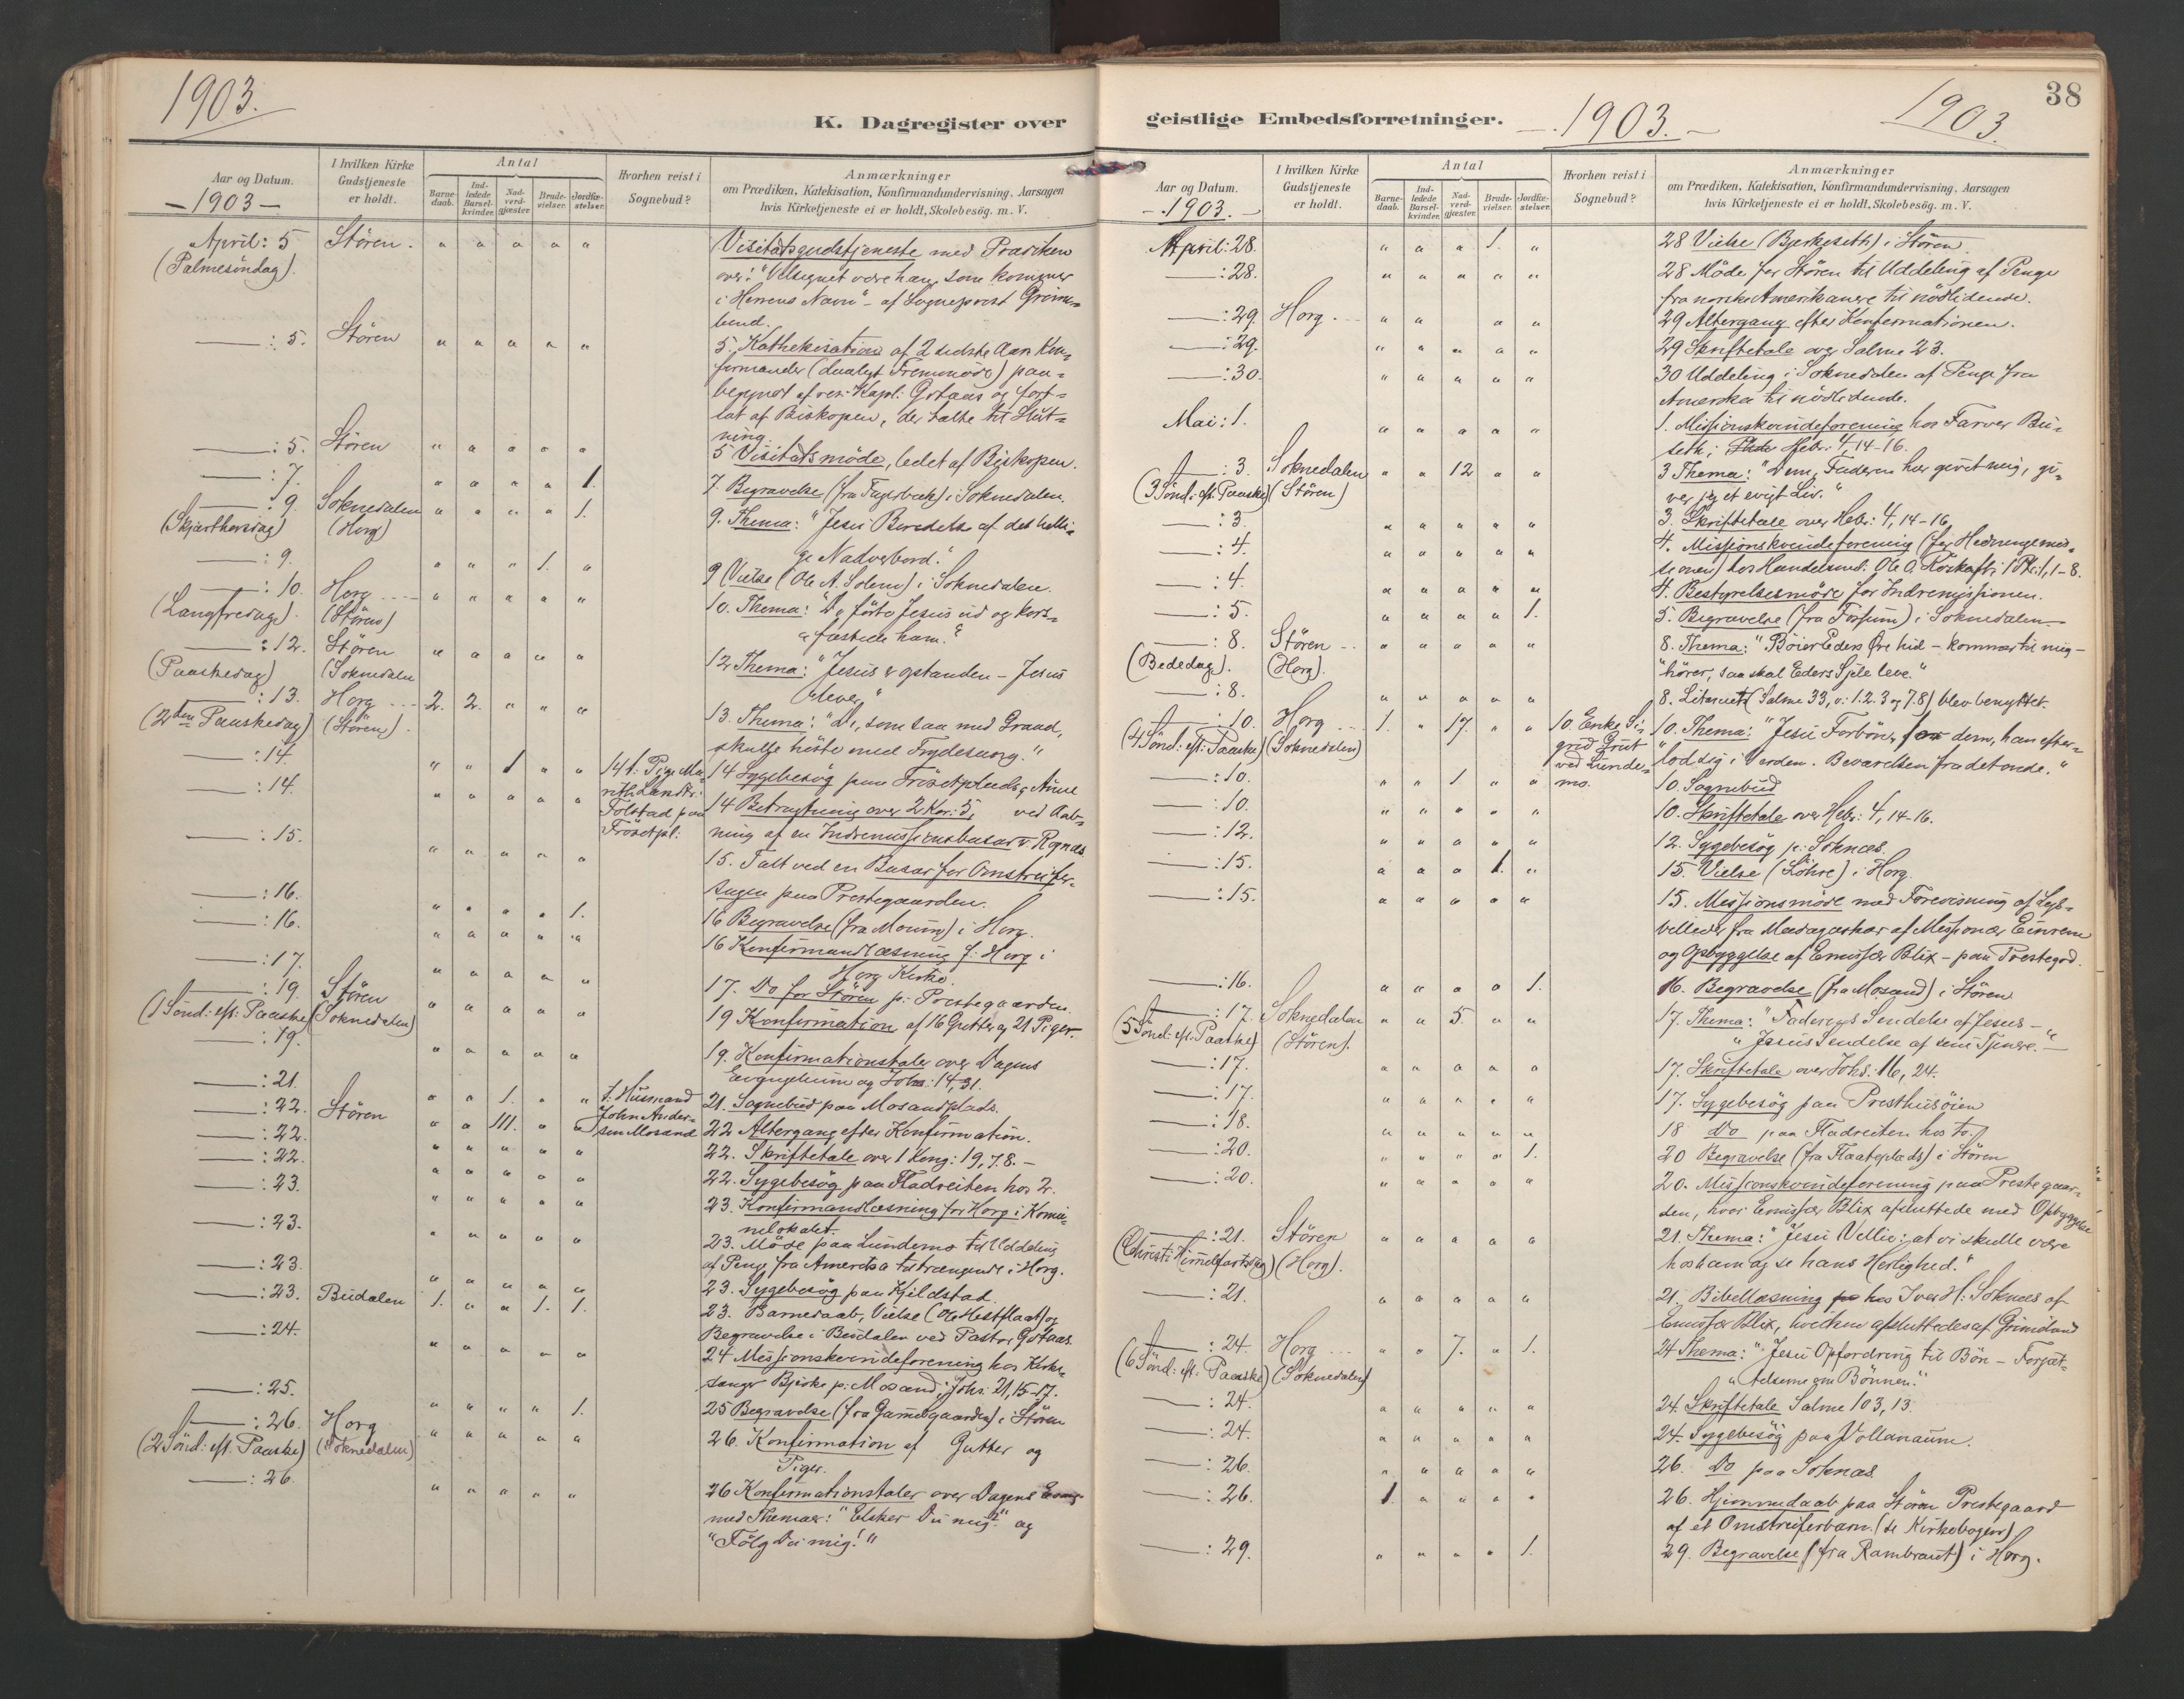 1903.
K. Dagregister over
Aar og Datum.
I hvilken Kirke Gudstjeneste er holdt.
Antal
Barne-daab.
Ind-ledede Barsel-kvinder.
Nad-verd-gjæster.
Brude-vielser.
Jordfæ-stelser.
Hvorhen reist i Sognebud?
Anmærkninger
om Prædiken, Katekisation, Konfirmandundervisning, Aarsagen
hvis Kirketjeneste ei er holdt, Skolebesög. m. V.
- 1903 -
April: 5 Stören. " " " " " Visitatsgudstjeneste med Prædiken
(Palmesöndag). over: "Velsignet være han, som kommer
i Herrens Navn" - af Sogneprest Grime-
lund.
: 5. Stören " " " " " 5. Kathekisation af 2 sidste Aars Kon-
firmander (daarligt Fremmöde) paa-
begyndt af res: Kapl: Götaas og fort-
sat af Biskopen, der talte til Slut-
ning.
: 5. Stören " " " " " 5 Visitatsmöde, ledet af Biskopen.
: 7. " " " " 1. 7. Begravelse (fra Fagerbek) i Soknedalen.
: 9. Soknedalen " " " " 1. 9. Thema: "Jesu Beredelse af det helli-
(Skjærthorsdag) (Horg)
ge Nadverbord."
: 9. " " " 1. " 9 Vielse (Ole A. Solem) i Soknedalen.
: 10. Horg " " " " " 10. Thema: "De förte Jesus ud og kors-
(Langfredag). (Stören) fæstede ham."
: 12. Stören " " " " " 12 Thema: "Jesus er opstanden - Jesus
(Paaskedag) (Soknedalen
lever."
: 13. Horg 2. 2. " " " 13. Thema: "De, som saa med Graad,
(2den Paaskedag) (Stören). skulle höste med Frydesang."
: 14. " " 1 " " 14 t. Pige Ma- 14 Sygebesög paa Frösetplads, Anne
: 14. " " " " " rith Landtr: 14 Betragtning over 2 Kor: 5, ved Aab-
Folstad paa
Frösetpl:
: 15. " " " " " ning af en Indremissionsbasar v. Rognæs
15. Talt ved en Basar for Omstreifer-
sagen paa Prestegaarden.
: 16. " " " " 1. 16 Begravelse (fra Moum) i Horg.
: 16. " " " " " 16 Konfirmandlæsning f: Horg i
Horg Kirke.
: 17. " " " " " 17. Do for Stören p: Prestegaarden.
: 19. Stören " " " " " 19 Konfirmation af 16 Gutter og 21 Piger.
(1 Sönd: eft: Paaske) (Soknedalen)
: 19. " " " " " 19. Konfirmationstaler over Dagens
Evangelium og Joh: 14, 31.
: 21. " " 1. " " t. Husmand 21. Sognebud paa Mosandplads.
: 22. Stören " " 111. " " John Ander- 22 Altergang efter Konfirmation.
sen Mosand
: 22. " " " " " 22. Skriftetale over 1 Kong: 19, 7.8. -
: 22. " " " " " 22. Sygebesög paa Fladreiten hos 2.
: 23. " " " " " 23. Konfirmandlæsning for Horg i Komu-
nelokalet.
: 23. " " " " " 23. Möde paa Lundemo til Uddeling
af Penge fra Amerika til trængende i Horg.
: 23. " " " " " 23. Sygebesög paa Kjildstad.
: 23. Budalen 1. " " 1. 1. 23. Barnedaab, Vielse (Ole Hestflaat) og
Begravelse i Budalen ved Pastor Götaas.
: 24. " " " " " 24 Missionskvindeforening hos Kirke-
sanger Bjerke p: Mosand; Joh: 21, 15-17.
: 25. " " " " 1. 25 Begravelse (fra Gammelgaarden) i Stören
: 26. Horg " " " " " 26. Konfirmation af Gutter og
(2 Sönd: eft. Paaske) (Soknedalen) Piger.
: 26. " " " " " 26 Konfirmationstaler over Dagens Evang
med Themaer: "Elsker Du mig?" og
"Fölg Du mig!"
38
geistlige Embedsforretninger.
- 1903. -
1903.
Aar og Datum.
I hvilken Kirke Gudstjeneste er holdt.
Antal
Barne-daab.
Ind-ledede Barsel-kvinder.
Nad-verd-gjæster.
Brude-vielser.
Jordfæ-stelser.
Hvorhen reist i Sognebud?
Anmærkninger
om Prædiken, Katekisation, Konfirmandundervisning, Aarsagen
hvis Kirketjeneste ei er holdt, Skolebesög. m. V.
- 1903. -
April: 28. " " " 1. " 28 Vielse (Bjerkeseth) i Stören
: 28. " " " " " 28 Möde for Stören til Uddeling af Penge
fra norske Amerikanere til nödlidende.
: 29. Horg. " " " " 29 Altergang efter Konfirmationen.
: 29. " " " " " 29 Skriftetale over Salme 23.
: 30. " " " " " 30 Uddeling i Soknedalen af Penge fra
Amerika til nödlidende.
Mai: 1. " " " " " 1. Missionskvindeforening hos Farver Bu-
seth; Hebr: 4, 14-16.
: 3. Soknedalen " " 12 " " 3 Thema: "Dem, Faderen har givet mig, gi-
(3 Sönd: eft. Paaske) (Stören) ver jeg et evigt Liv."
: 3. " " " " " 3. Skriftetale over Hebr: 4, 14-16
: 4. " " " " " 4. Missionskvindeforening (for Hedningemis-
sionen) hos Handelsmd: Ole O. Korkaft: 1 Pet: 1, 1-8.
: 4. " " " " " 4. Bestyrelsesmöde for Indremissionen.
: 5. " " " " 1. 5. Begravelse (fra Forsum) i Soknedalen
: 8. Stören " " " " " 8. Thema: "Böier Eders Öre hid - kommer til mig -
(Bededag). (Horg). "hörer, saa skal Eders Sjæle leve."
: 8. " " " " " 8. Litaniet (Salme 33, v: 1.2.3 og 7.8) blev benyttet.
: 10. Horg 1. " 17. " " 10. Enke Si- 10. Thema: "Jesu Forbön for dem, han efter-
(4 Sönd: eft: Paaske) (Soknedalen) grid Grut "lod sig i Verden. Bevarelsen fra det onde."
: 10. " " 1 " " ved Lunde- 10. Sognebud
mo.
: 10. " " " " " 10. Skriftetale over Hebr: 4, 14-16.
: 12. " " " " " 12. Sygebesög p: Soknæs.
: 15. " " " 1. " 15. Vielse (Löhre) i Horg.
: 15. " " " " " 15. Missionsmöde med Forevisning af Lys-
billeder fra Madagaskar af Missionær Einrem
og Opbyggelse af Emissær Blix - paa Prestegrd.
: 16. " " " " 1. 16. Begravelse (fra Mosand) i Stören
: 17. Soknedalen " " 5. " " 17. Thema: "Faderens Sendelse af Jesus -
(5 Sönd: eft. Paaske) (Stören). "Jesu Sendelse af sine Tjenere."
: 17. " " " " " 17. Skriftetale over Joh: 16, 24.
: 17. " " " " " 17. Sygebesög paa Presthusöien
: 18. " " " " " 18 Do paa Fladreiten hos to.
: 20. " " " " 1. 20 Begravelse (fra Kaateplads) i Stören
: 20. " " " " " 20. Missionskvindeforening paa Prestegaar-
den, hvor Emissær Blix afsluttede med Opbyggelse
: 21. Stören " " " " " 21. Thema: "Jesu Villie: at vi skulle være
(Christi Himmelfartsdag) (Horg). hos ham og se hans Herlighed."
: 21. " " " " " 21. Bibellæsning hos Iver H: Soknæs af
Emissær Blix, hvilken afsluttedes af Grimelund
: 24. Horg " " 7. " 1. 24 Thema: "Jesu Opfordring til Bön - Forjæt-
(6 Sönd: eft: Paaske) (Soknedalen) "telserne om Bönnen."
: 24. " " " " " 24. Skriftetale Salme 103, 13.
: 24. " " " " " 24. Sygebesög paa Vollanaum.
: 26. " " " " " 26. Do paa Soknæs
: 26. 1 " " " " 26. Hjemmedaab paa Stören Prestegaard
af et Omstreiferbarn. (se Kirkebogen)
: 29. " " " " 1. 29. Begravelse (fra Rambraut) i Horg.